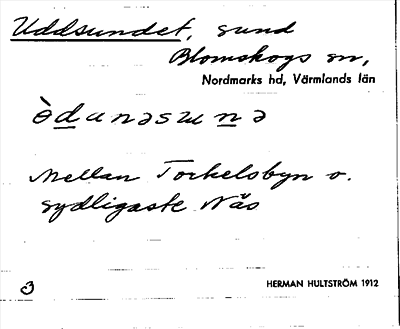 Uddsundet, sund
Blomskogs sn,
Nordmarks hd, Värmlands län
Mellan Torkelsbyn o.
sydligaste Näs
HERMAN HULTSTRÖM 1912